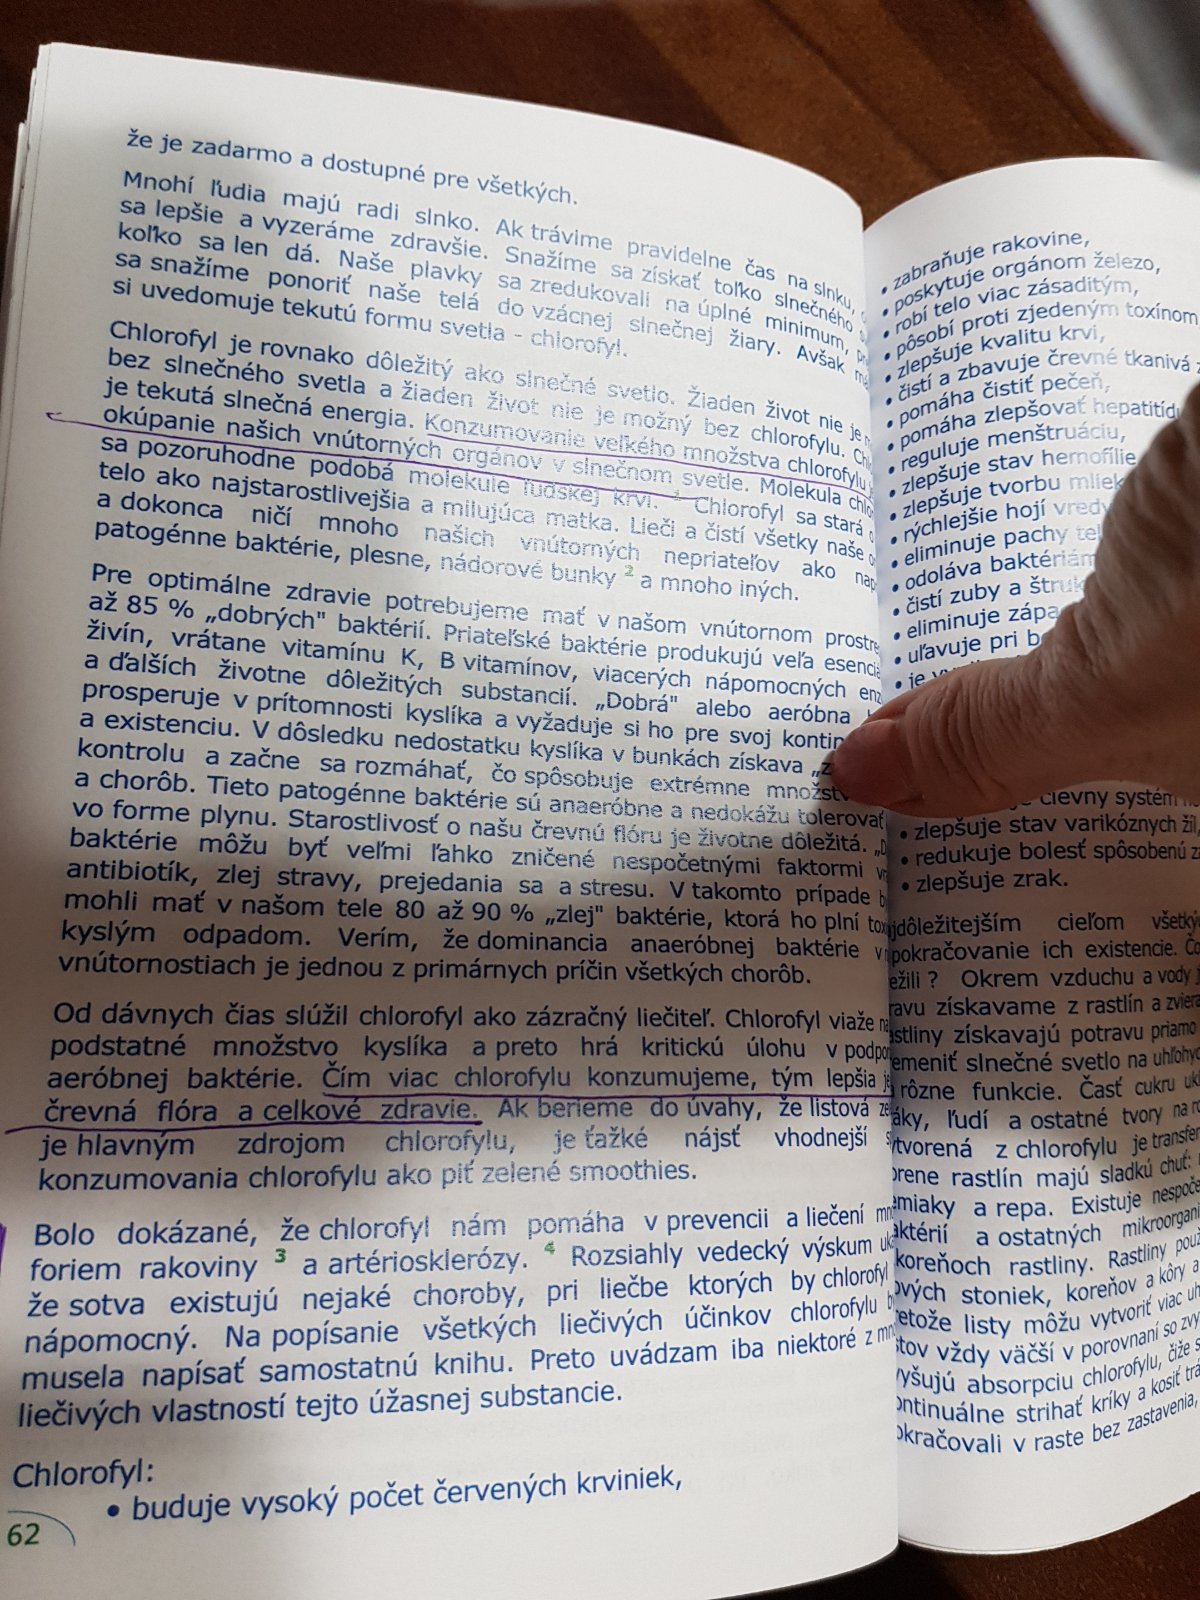 že je zadarmo a dostupné pre všetkých.
Mnohí ľudia majú radi slnko. Ak trávime pravidelne čas na slnku,
sa lepšie a vyzeráme zdravšie. Snažíme sa získať toľko slnečného
koľko sa len dá. Naše plavky sa zredukovali na úplné minimum,
sa snažíme ponoriť naše telá do vzácnej slnečnej žiary. Avšak
si uvedomuje tekutú formu svetla - chlorofyl.
Chlorofyl je rovnako dôležitý ako slnečné svetlo. Žiaden život nie je
bez slnečného svetla a žiaden život nie je možný bez chlorofylu.
je tekutá slnečná energia. Konzumovanie veľkého množstva chlorofylu
okúpanie našich vnútorných orgánov v slnečnom svetle. Molekula
sa pozoruhodne podobá molekule ľudskej krvi. 1 Chlorofyl sa stará
telo ako najstarostlivejšia a milujúca matka. Lieči a čistí všetky naše
a dokonca ničí mnoho našich vnútorných nepriateľov ako
patogénne baktérie, plesne, nádorové bunky 2 a mnoho iných.
Pre optimálne zdravie potrebujeme mať v našom vnútornom
až 85 % „dobrých" baktérií. Priateľské baktérie produkujú veľa
živín, vrátane vitamínu K, B vitamínov, viacerých nápomocných
a ďalších životne dôležitých substancií. „Dobrá" alebo aeróbna
prosperuje v prítomnosti kyslíka a vyžaduje si ho pre svoj
a existenciu. V dôsledku nedostatku kyslíka v bunkách získava
kontrolu a začne sa rozmáhať, čo spôsobuje extrémne
a chorôb. Tieto patogénne baktérie sú anaeróbne a nedokážu tolerovať
vo forme plynu. Starostlivosť o našu črevnú flóru je životne dôležitá.
baktérie môžu byť veľmi ľahko zničené nespočetnými faktormi
antibiotík, zlej stravy, prejedania sa a stresu. V takomto prípade
mohli mať v našom tele 80 až 90 % „zlej" baktérie, ktorá ho plní
kyslým odpadom. Verím, že dominancia anaeróbnej baktérie v
vnútornostiach je jednou z primárnych príčin všetkých chorôb.
Od dávnych čias slúžil chlorofyl ako zázračný liečiteľ. Chlorofyl viaže
podstatné množstvo kyslíka a preto hrá kritickú úlohu v
aeróbnej baktérie. Čím viac chlorofylu konzumujeme, tým lepšia je
črevná flóra a celkové zdravie. Ak berieme do úvahy, že listová
je hlavným zdrojom chlorofylu, je ťažké nájsť vhodnejší
konzumovania chlorofylu ako piť zelené smoothies.
Bolo dokázané, že chlorofyl nám pomáha v prevencii a liečení
foriem rakoviny 3 a artériosklerózy. 4 Rozsiahly vedecký výskum
že sotva existujú nejaké choroby, pri liečbe ktorých by chlorofyl
nápomocný. Na popísanie všetkých liečivých účinkov chlorofylu
musela napísať samostatnú knihu. Preto uvádzam iba niektoré z
liečivých vlastností tejto úžasnej substancie.
Chlorofyl:
• buduje vysoký počet červených krviniek,
62
• zabraňuje rakovine,
• poskytuje orgánom železo,
• robí telo viac zásaditým,
• pôsobí proti zjedeným toxínom
• zlepšuje kvalitu krvi,
• čistí a zbavuje črevné tkanivá
• pomáha čistiť pečeň,
• pomáha zlepšovať hepatitídu
• reguluje menštruáciu,
• zlepšuje stav hemofílie
• zlepšuje tvorbu
• rýchlejšie hojí vredy
• eliminuje pachy
• odoláva baktériám
• čistí zuby a
• eliminuje
• uľavuje pri
• je
črevný systém
• zlepšuje stav varikóznych žíl,
• redukuje bolesť spôsobenú
• zlepšuje zrak.
cieľom
pokračovanie ich existencie.
? Okrem vzduchu a vody
získavame z rastlín a
získavajú potravu priamo
slnečné svetlo na
rôzne funkcie. Časť cukru
ľudí a ostatné tvory na
z chlorofylu je
rastlín majú sladkú chuť:
a repa. Existuje
a ostatných
koreňoch rastliny. Rastliny
stoniek, koreňov a kôry a
listy môžu vytvoriť viac
vždy väčší v porovnaní so
absorpciu chlorofylu, čiže
strihať kríky a kosiť
v raste bez zastavenia,